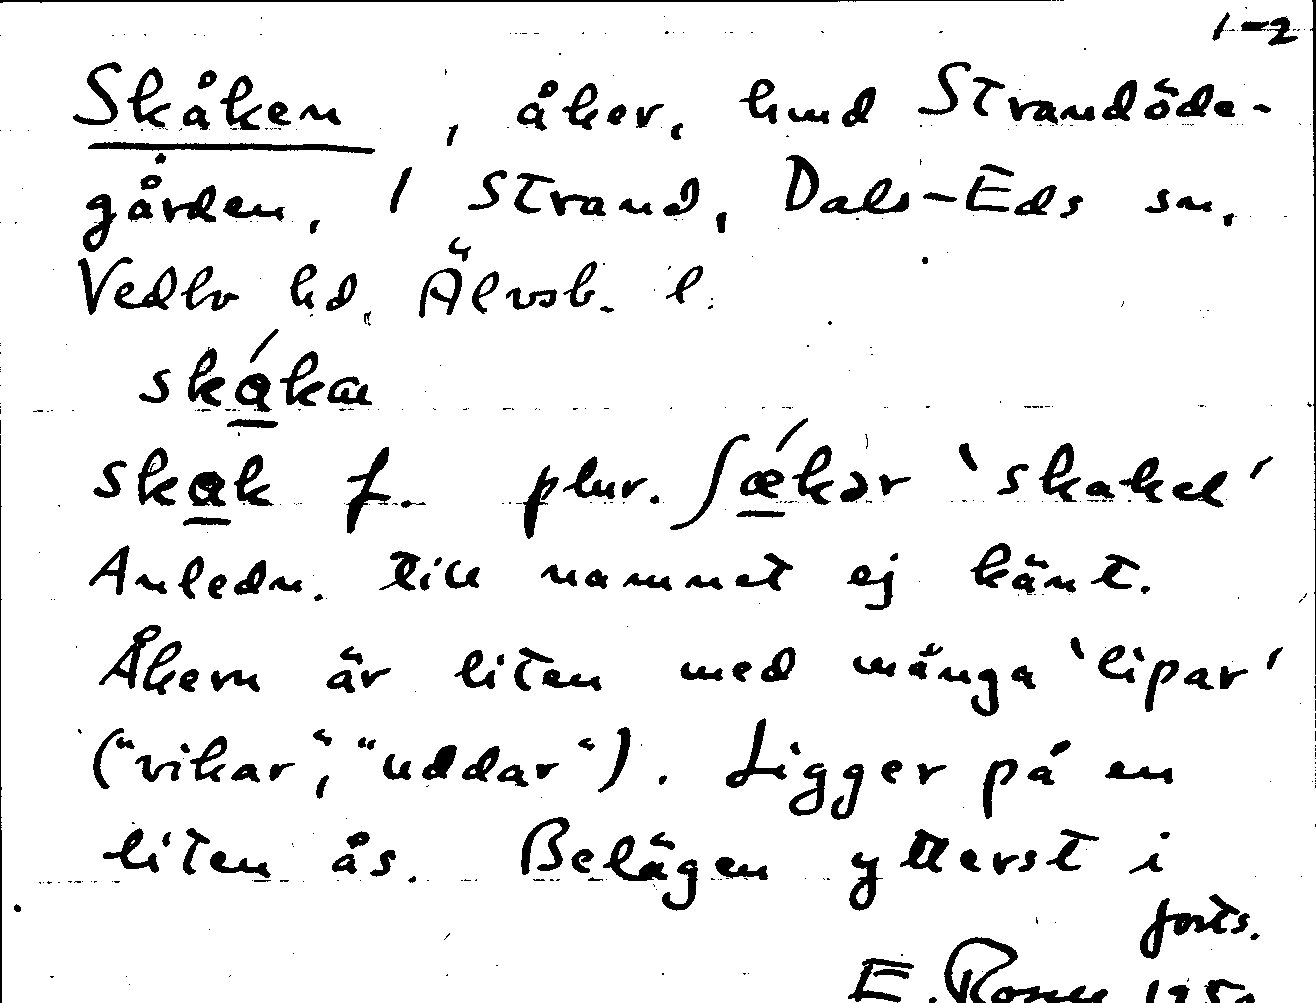 1-2
Skåken, åker, hmd Strandöde-
gården, 1 Strand, Dals-Eds sn,
Vedbo hd, Älvsb. l.
skákan
skak f. plur. ʃǽkər `skakel´
Anledn. till namnet ej känt.
Åkern är liten med många `lipar´
("vikar", "uddar"). Ligger på en
liten ås. Belägen ytterst i
forts.
E.